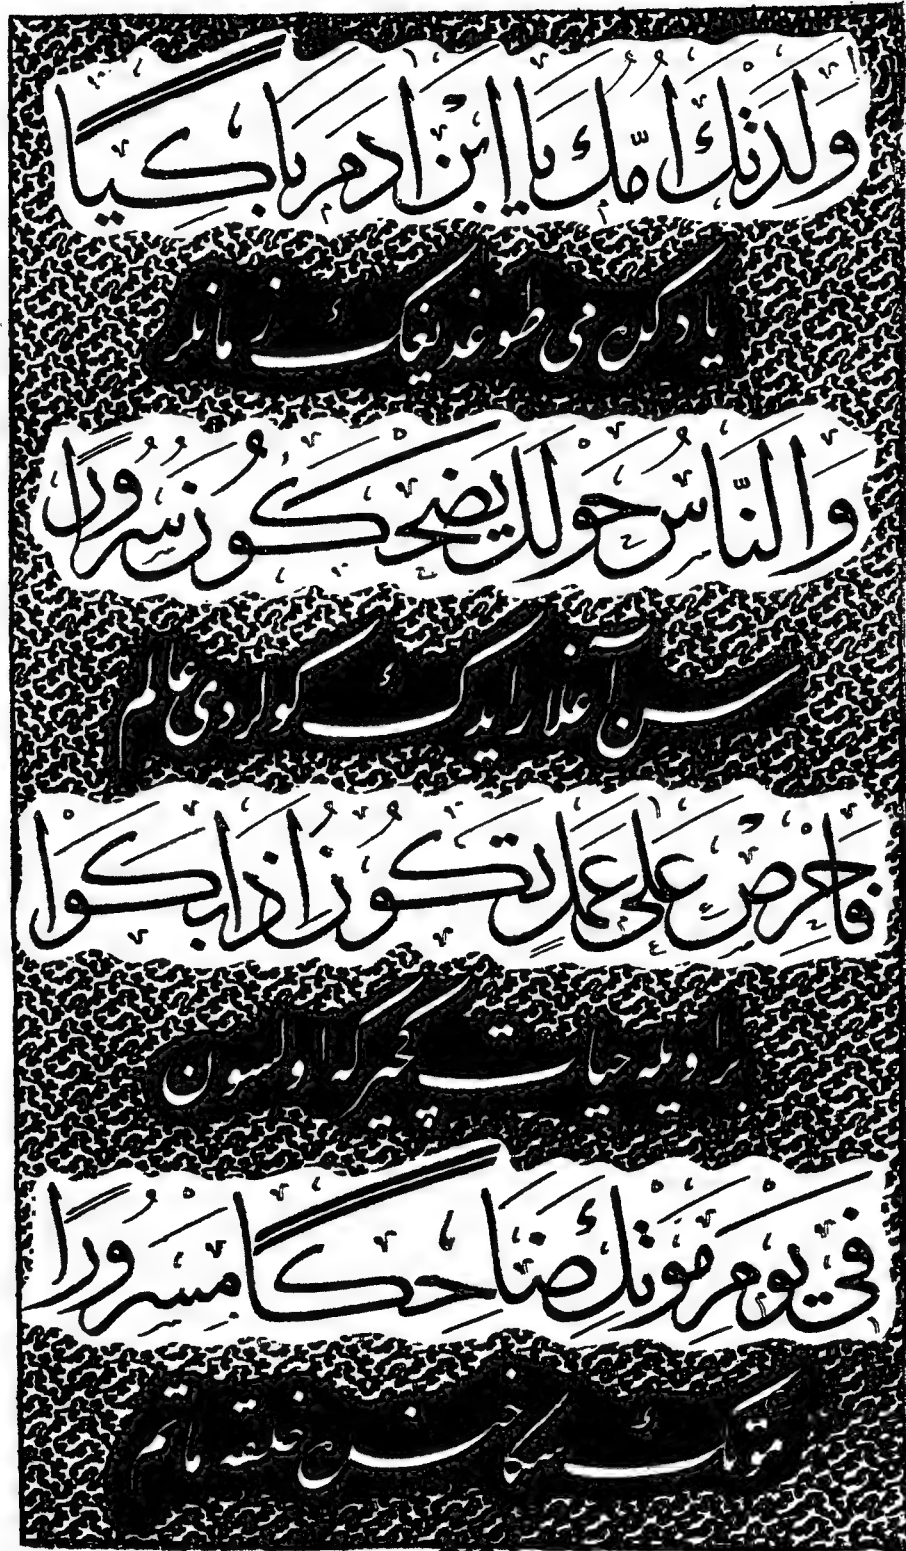 وَلَدَتْكَ اُمُّكَ يَا ابْنَ اٰدَمَ بَاكِيًا
ياد كن می طوغديغك زمانلر
وَالنَّاسُ حَوْلَكَ يَضْحَكُونَ سُرُورًا
سن آغلار ايدك كولردی عالم
فَاحْرِصْ عَلٰى عَمَلٍ تَكُونُ اِذَا بَكَوْا
بر اويله حيات كچير كه اولسون
فِي يَوْمِ مَوْتِكَ ضَاحِكًا مَسْرُورًا
موتك سكا خنده خلقه ماتم